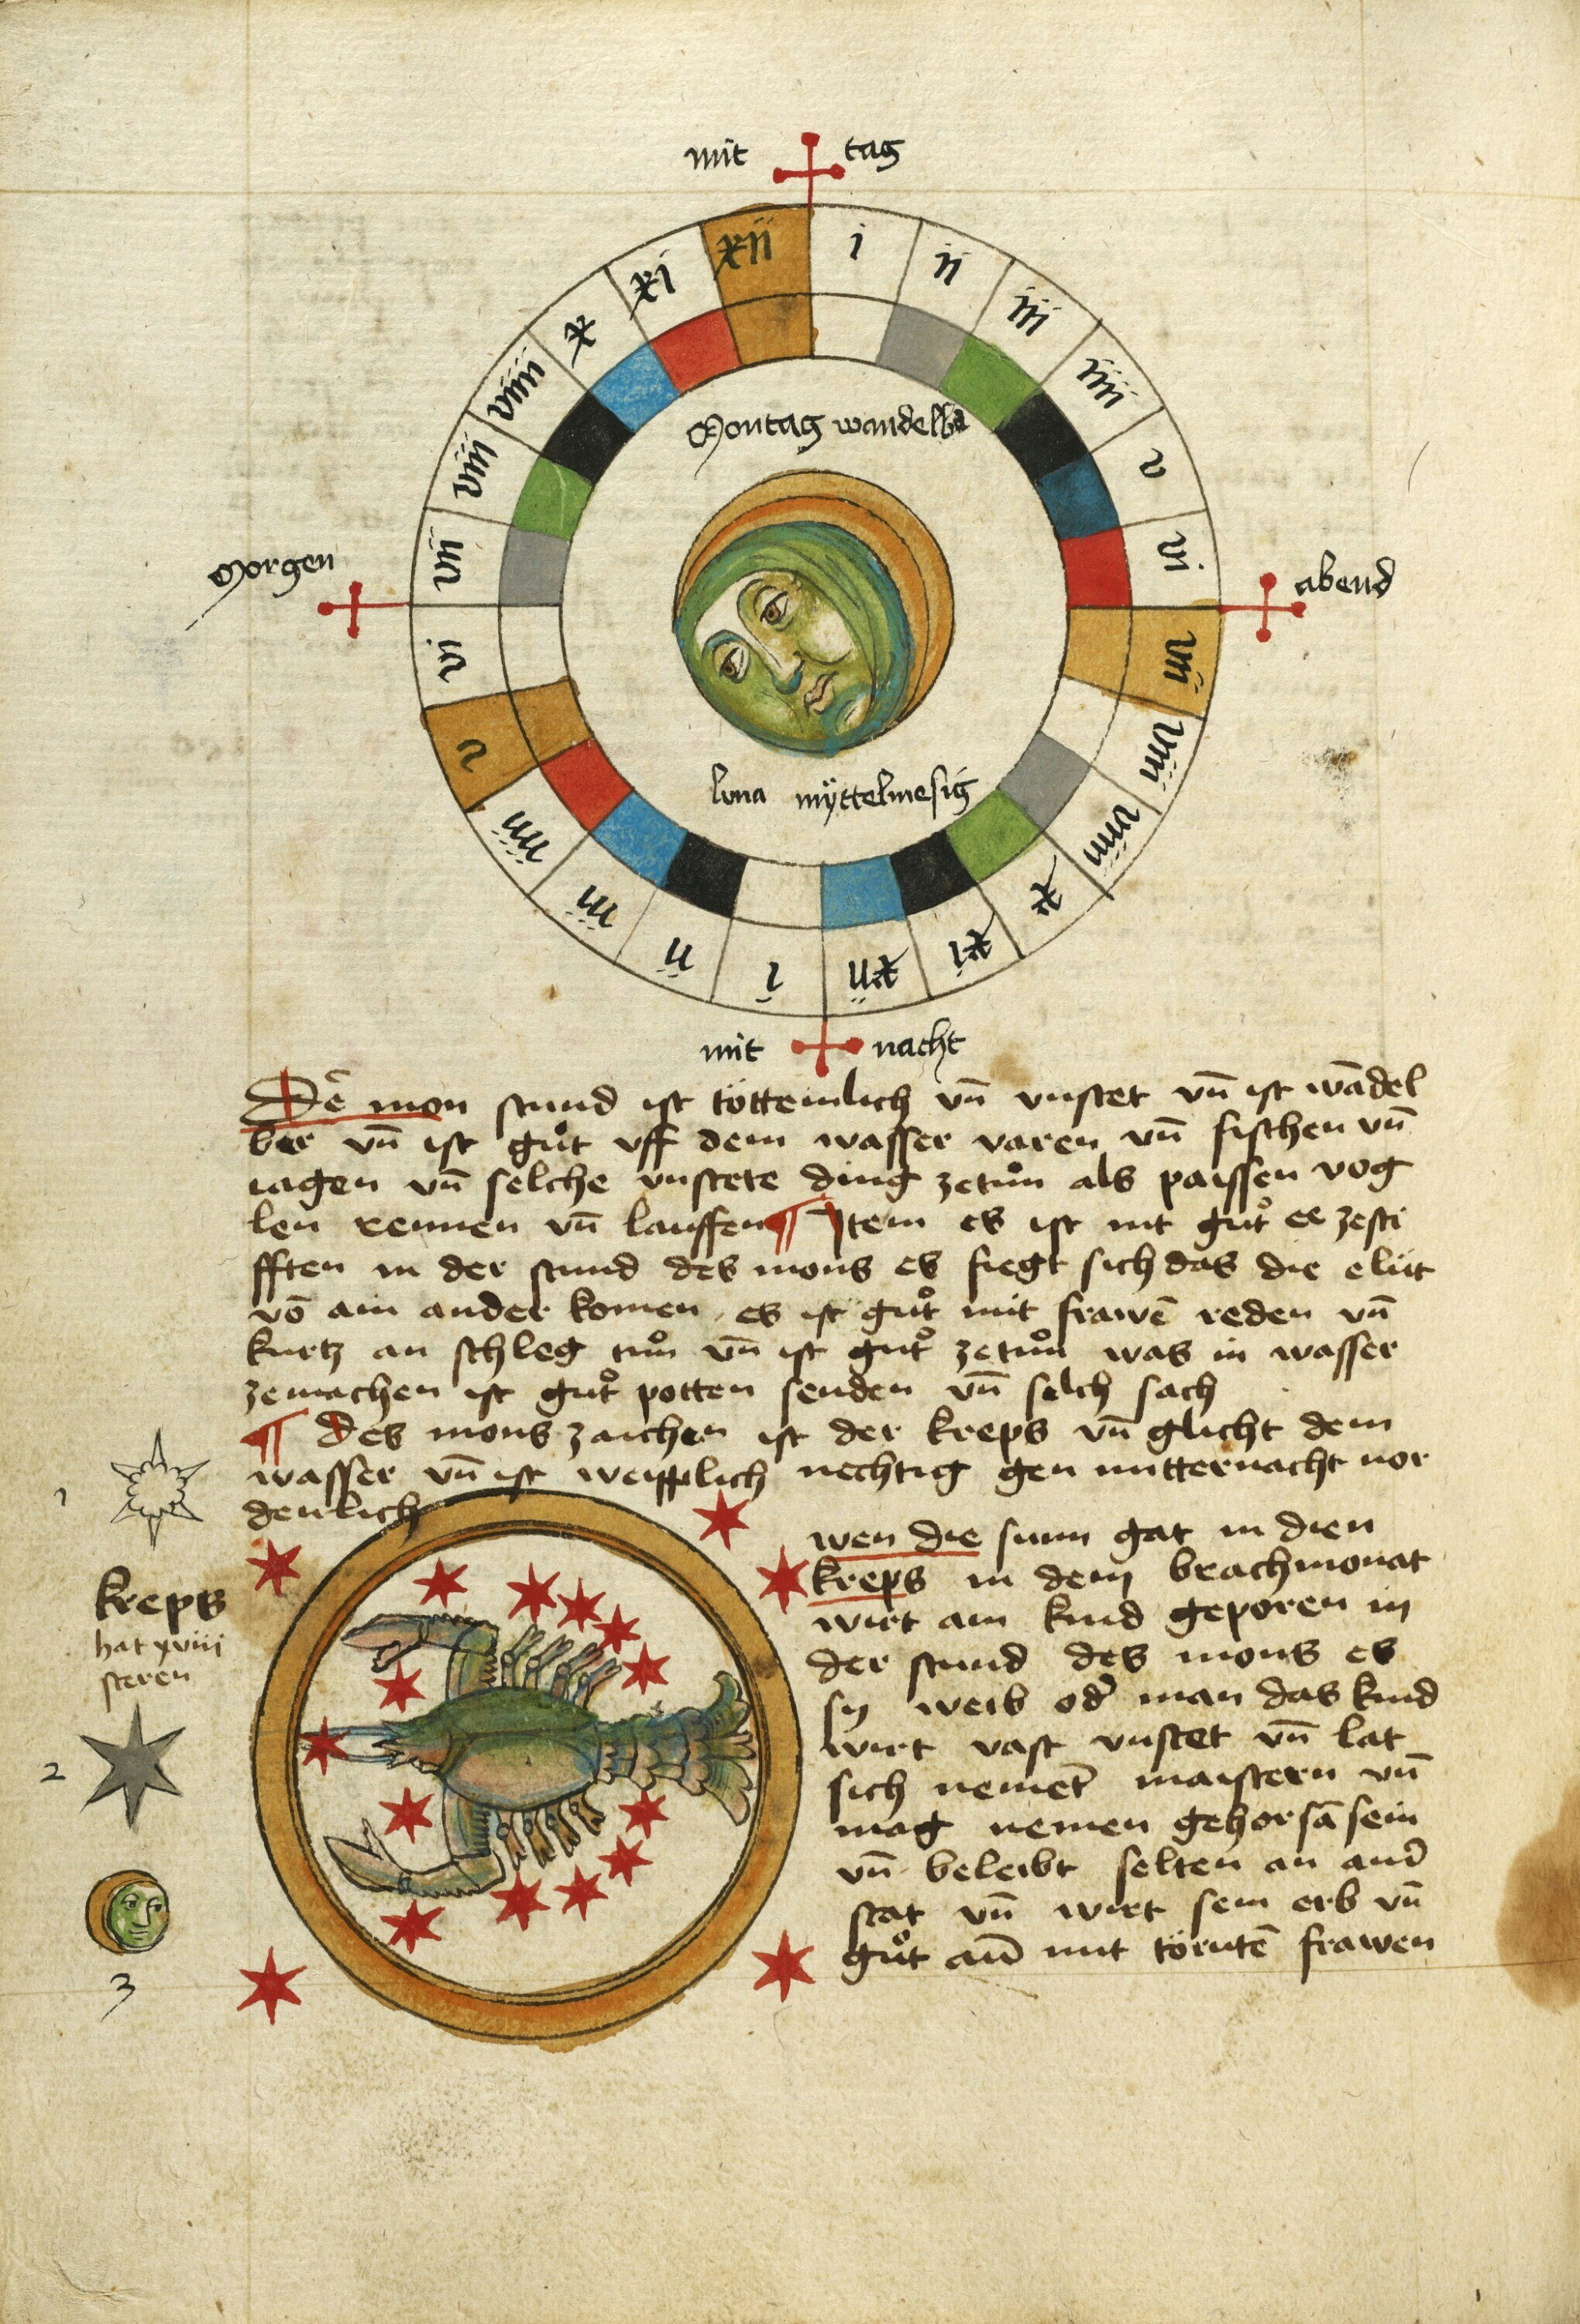 mit tag
xii i ii iii iiii v vi
vii viii viiii x xi xii
i ii iii iiii v vi
vii viii viiii x xi
Morgen
abend
Montag wandelb
luna myttelmesig
mit nacht
Dē mon stund ist töttemlich vn̄ vnstet vn̄ ist wādel
ber vn̄ ist guͦt vff dem wasser varen vn̄ fischen vn̄
iagen vn̄ selche vnstete ding zetuͦn als paissen vog
len rennen vn̄ lauffen ¶ Item es ist nit guͦt ee zesti
fften in der stund des mons es fiegt sich das die elüt
vō ain ander komen es ist guͦt mit frawē reden vn̄
kurtz an schleg tuͦn vn̄ ist guͦt zetuͦn was in wasser
zemachen ist guͦt potten senden vn̄ solch sach
¶ des mons zaichen ist der kreps vn̄ glicht dem
wasser vn̄ ist weipplich nechtig gen mitternacht nor
denlich
1
kreps
hat xviii
steren
2
3
wen die sunn gat in dien
kreps in dem brachmonat
wirt ain kind geporen in
der stund des mons es
sy weib od̄ man das kind
wirt vast vnstet vn̄ lat
sich nemet̄ maistern vn̄
mag nemen gehorsā sein
vn̄ beleibt selten an and̄
stat vn̄ wirt sein erb vn̄
guͦt mit törntē frawen